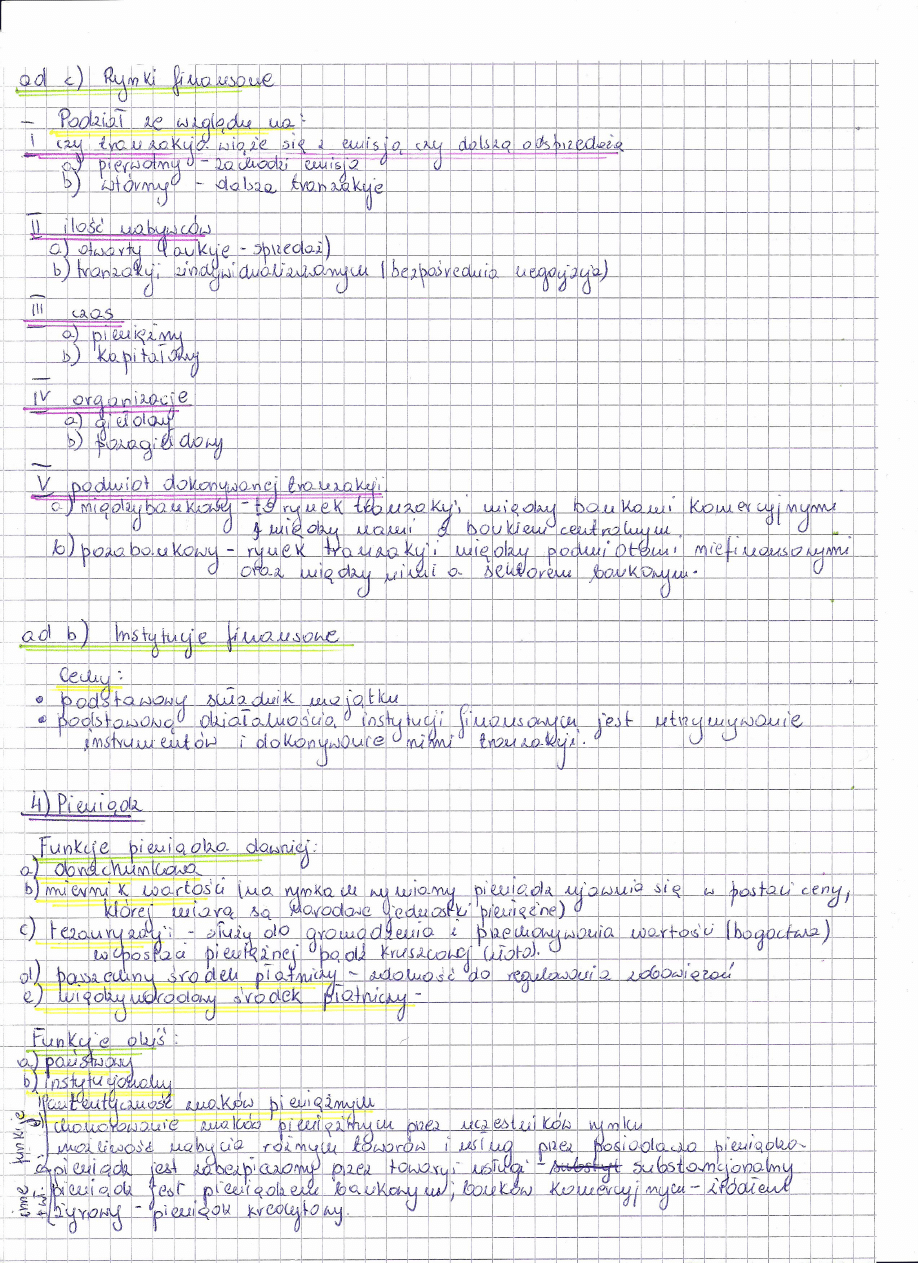 ad c) Rynki finansowe
- Podział ze względu na:
I czy tranzakcja wiąże się z emisją czy dalszą odsprzedażą
a) pierwotny - zachodzi emisja
b) wtórny - dalsze tranzakcje
II ilość nabywców
a) otwarty (aukcje - sprzedaż)
b) tranzakcji zindywidualizowanych (bezpośrednia negocjacja)
III czas
a) pieniężny
b) kapitałowy
IV organizacje
a) giełdowy
b) pozagiełdowy
V podmiot dokonywanej tranzakcji
a) międzybankowy - rynek tranzakcji między bankami komercyjnymi
i między nami a bankiem centralnym.
b) pozabankowy - rynek tranzakcji między podmiotami niefinansowymi
oraz między nimi a sektorem bankowym.
ad b) Instytucje finansowe
Cechy:
• podstawowy składnik majątku
• podstawową działalnością instytucji finansowych jest utrzymywanie
instrumentów i dokonywanie nimi tranzakcji.
4) Pieniądz
Funkcje pieniądza dawniej:
a) obrachunkowa
b) miernik wartości (na rynkach wymiany pieniądz ujawnia się w postaci ceny,
której miarą są narodowe jednostki pieniężne)
c) tezauryzacji - służy do gromadzenia i przechowywania wartości (bogactwa)
w postaci pieniężnej bądź kruszcowej (złoto).
d) powszechny środek płatniczy - zdolność do regulowania zobowiązań
e) międzynarodowy środek płatniczy -
Funkcje dziś:
a) państwowy
b) instytucjonalny
autentyczność znaków pieniężnych
honorowanie znaków pieniężnych przez uczestników rynku
możliwość nabycia różnych towarów i usług przez posiadacza pieniądza
pieniądz jest zabezpieczony przez towary i usługi - substancjonalny
pieniądz jest pieniądzem bankowym, banków komercyjnych -
żyrowy - pieniądz kredytowy.
inne funkcje